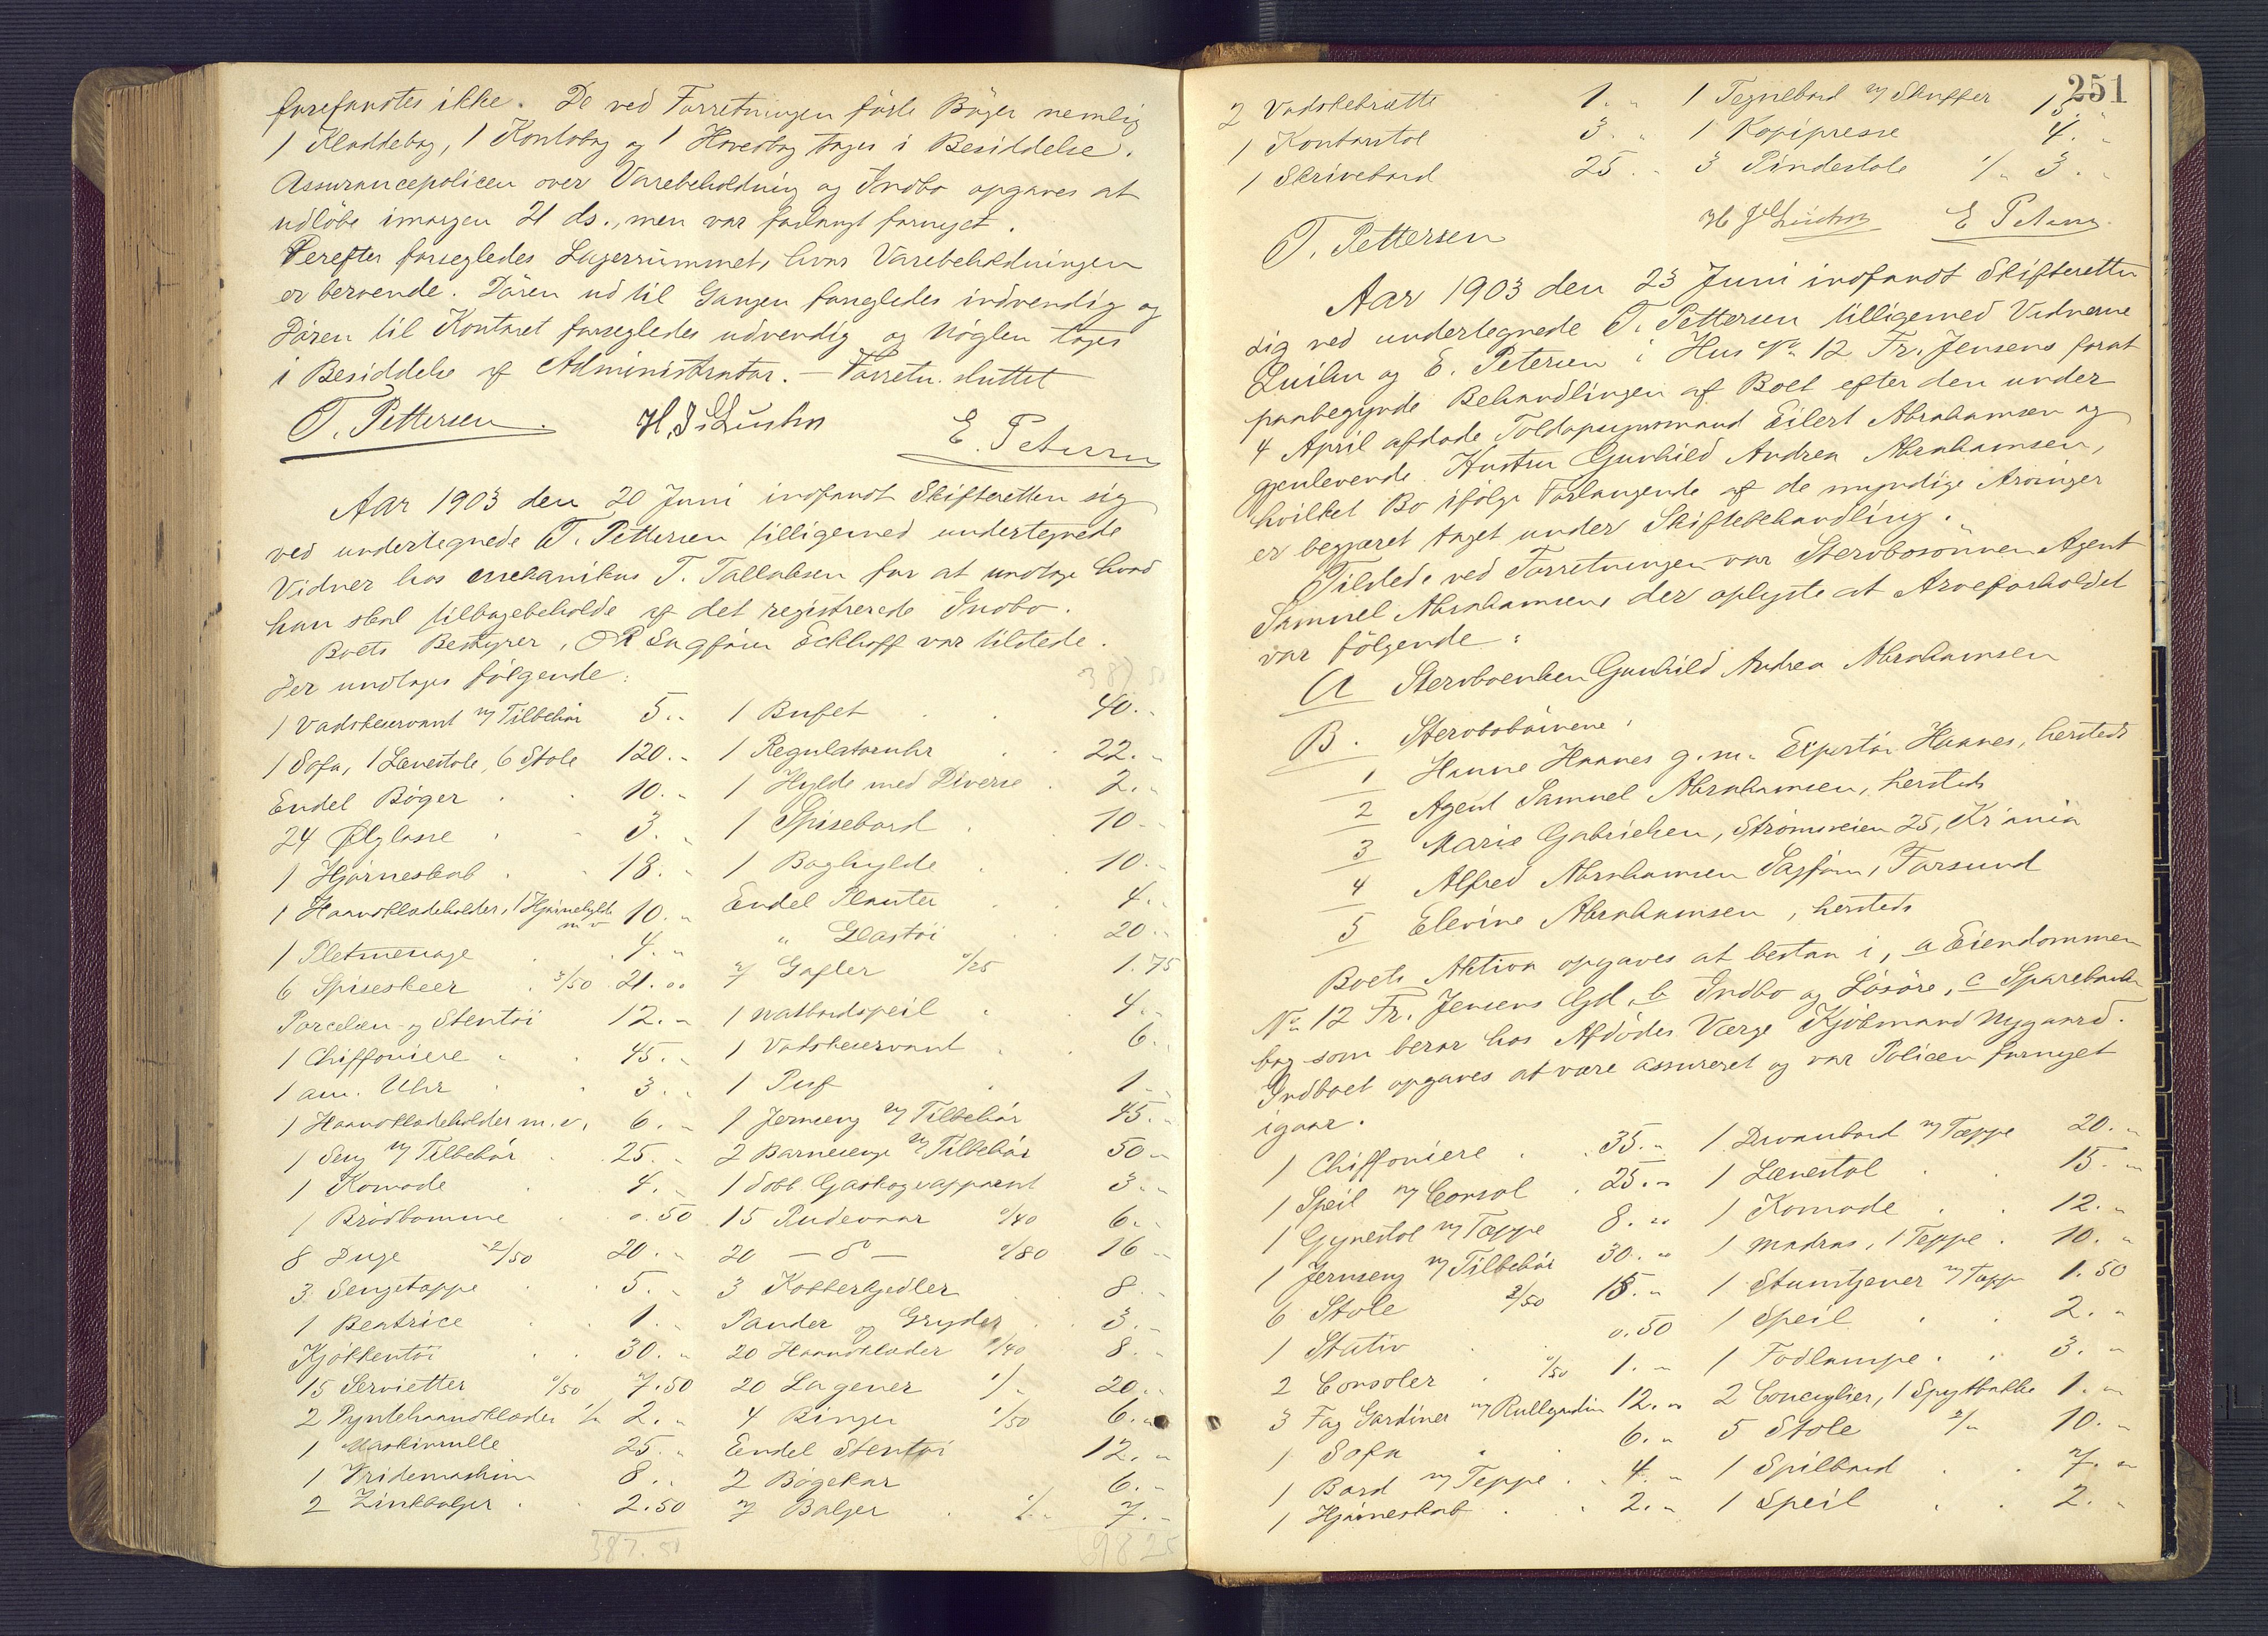 forefandtes ikke. De ved Forretningen förte Böger nemlig
1 Kladdebog, 1 Kontobog og 1 Hovedbog toges i Besiddelse.
Assurancepolicen over Varebeholdning og Indbo opgaves at
udlöbe imorgen 21 ds., men var forlangt fornyet.
Derefter forsegledes Lagerrummet, hvor Varebeholdningen
er beroende. Dören ud til Gangen forsegledes indvendig og
Dören til Kontoret forsegledes udvendig og Nöglen toges
i Besiddelse af Administrator. — Forretn. sluttet
T. Pettersen. E. Petersen
Aar 1903 den 20 Juni indfandt Skifteretten sig
ved undertegnede T. Pettersen tilligemed undertegnede
Vidner hos Mekanikus T. Tallaksen for at undtage hvad
han skal tilbagebeholde af det registrerede Indbo.
Boets Bestyrer, OR Sagförer Eckhoff var tilstede.
Der undtages fölgende:
1 Vadskeservant m/ Tilbehör 5.. 1 Bufet 40..
1 Sofa, 1 Lænestole, 6 Stole 120.. 1 Regulatoruhr 22..
Endel Böger 10.. 1 Hylde med Diverse 2..
24 Ölglasse 3.. 1 Spisebord 10..
1 Hjörneskab 18.. 1 Boghylde 10..
1 Haandklædeholder, 1 Hjörnehylde m v 10.. Endel Planter 4..
1 Pletmenage 4.. " Glastöi 20..
6 Spiseskeer 3/50 21.00 7 Gafler "/25 1.75
Porcelæn og Stentöi 12.. 1 Natbordspeil 4..
1 Chiffoniere 45.. 1 Vadskeservant 6..
1 am. Uhr 3.. 1 Puf 1..
1 Haandklædeholder m.v. 6.. 1 Jernseng m/ Tilbehör 45..
1 Seng m/ Tilbehör 25.. 2 Barnesenge m/ Tilbehör 50..
1 Komode 4.. 1 dobb Gaskogeapparat 3..
1 Brödbomme 0.50 15 Pudevaar "/40 6..
8 Duge 2/50 20.. 20 — do — "/80 16..
3 Sengetæppe 5.. 3 Kobberkjedler 8..
1 Beatrice 1.. Pander og Gryder 3..
Kjökkentöi 30.. 20 Haandklæder "/40 8..
15 Servietter "/50 7.50 20 Lagener 1/.. 20..
2 Pyntehaandklæder 1/.. 2.. 4 Binger 1/50 6..
1 Maskinrulle 25.. Endel Stentöi 12..
1 Vridemaskine 8.. 2 Bögekar 6..
2 Zinkbalger 2.50 7 Balger 1/.. 7..
387.50
251
2 Vadskebrætte 1.. 1 Tegnebord m/ Skuffer 15..
1 Kontorstol 3.. 1 Kopipresse 4..
1 Skrivebord 25.. 3 Pindestole 1/.. 3..
T. Pettersen E Petersen
Aar 1903 den 23 Juni indfandt Skifteretten
sig ved undertegnede T. Pettersen tilligemed Vidnerne
og E. Petersen i Hus No 12 Fr. Jensens forat
paabegynde Behandlingen af Boet efter den under
4 April afdöde Toldopsynsmand Eilert Abrahamsen og
gjenlevende Hustru Gunhild Andrea Abrahamsen,
hvilket Bo ifölge Forlangende af de myndige Arvinger
er begjæret taget under Skiftebehandling.
Tilstede ved Forretningen var Stervbosönnen Agent
Samuel Abrahamsen, der oplyste at Arveforholdet
var fölgende:
A Stervboenken Gunhild Andrea Abrahamsen
B. Stervbobörnene:
1 Hanne Haanes g.m. Expeditör Haanes, hersteds
2 Agent Samuel Abrahamsen, hersteds
3 Marie Gabrielsen, Strömsveien 25, Kr.ania
4 Alfred Abrahamsen Sagförer, Farsund
5 Elevine Abrahamsen, hersteds
Boets Aktiva opgaves at bestaa i, a Eiendommen
No 12 Fr. Jensens Gd, b Indbo og Lösöre, c Sparebank-
bog som beror hos Afdödes Værge Kjöbmand Nygaard.
Indboet opgaves at være assureret og var Policen fornyet
igaar.
1 Chiffoniere 35.. 1 Divanbord m/ Tæppe 20..
1 Speil m/ Consol 25.. 1 Lænestol 15..
1 Gyngestol m/ Tæppe 8.. 1 Komode 12..
1 Jernseng m/ Tilbehör 30.. 1 Madras, 1 Teppe 10..
6 Stole 2/50 15.. 1 Stumtjener m/ Tæppe 1.50
1 Stativ 0.50 1 Speil 2..
2 Consoler "/50 1.. 1 Fodlampe 3..
3 Fag Gardiner m/ Rullegardin 12.. 2 Concylier, 1 Spytbakke 1..
1 Sofa 6.. 5 Stole 2/.. 10..
1 Bord m/ Teppe 4.. 1 Spilbord 7..
1 Hjörneskab 2.. 1 Speil 2..